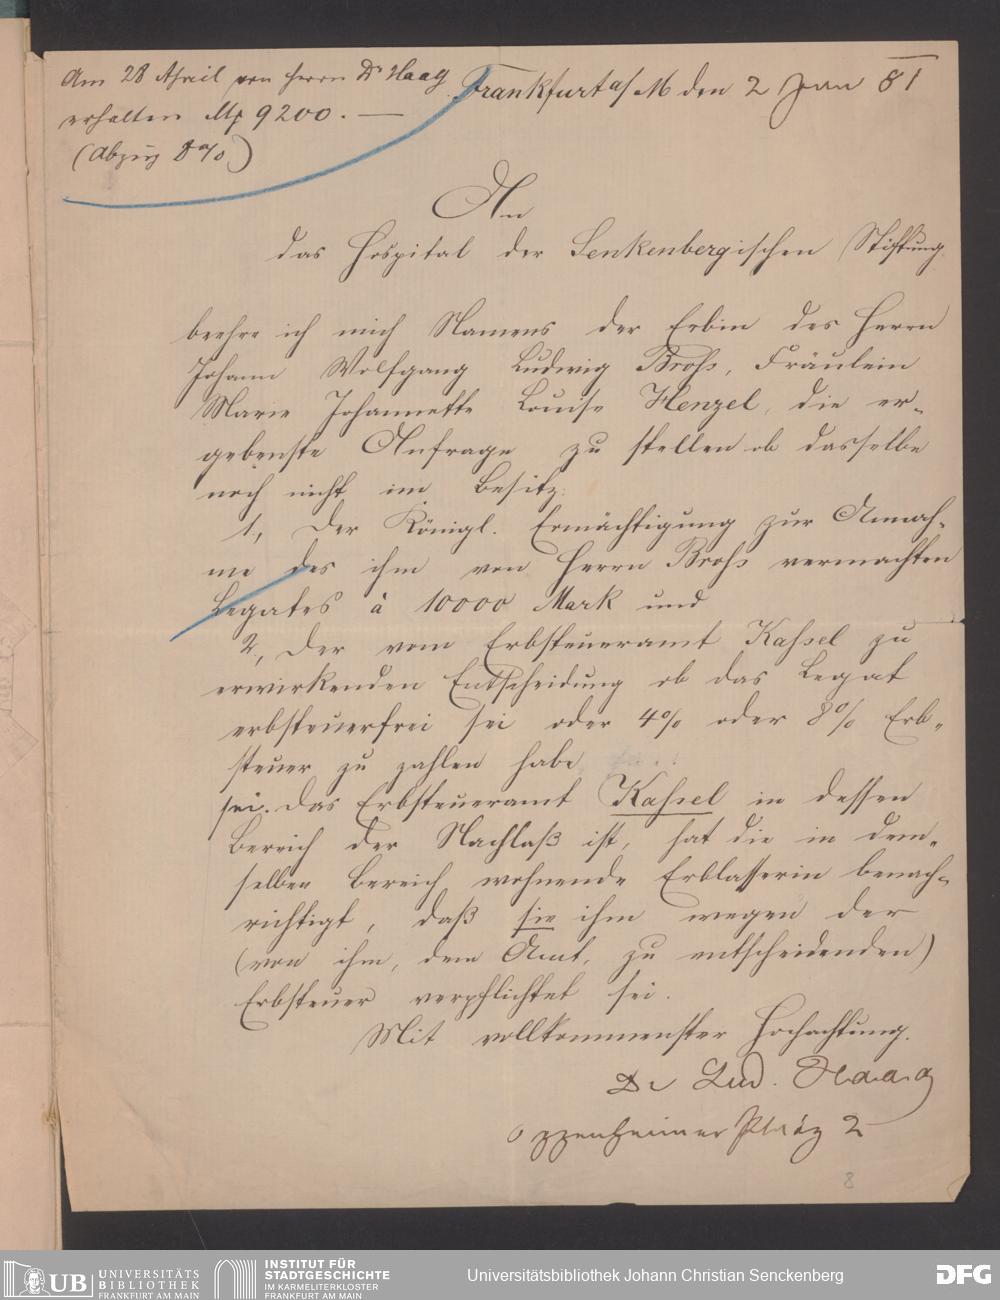 Am 28 April von Herrn Dr Haag
erhalten Mk 9200. —
(Abzug 8%)
Frankfurt a/M den 2 Jan 81
An
das Hospital der Senkenbergischen Stiftung
beehre ich mich Namens der Erbin des Herrn
Johann Wolfgang Ludwig Broß, Fräulein
Marie Johannette Louise Henzel, die er-
gebenste Anfrage zu stellen ob dasselbe
noch nicht im Besitz:
1, der Königl. Ermächtigung zur Annah-
me des ihm von Herrn Broß vermachten
Legates à 10000 Mark und
2, der vom Erbsteueramt Kassel zu
erwirkenden Entscheidung ob das Legat
erbsteuerfrei sei oder 4% oder 8% Erb-
steuer zu zahlen habe
sei. Das Erbsteueramt Kassel in dessen
Bereich der Nachlaß ist, hat die in dem-
selben Bereich wohnende Erblasserin benach-
richtigt, daß sie ihm wegen der
(von ihm, dem Amt, zu entscheidenden)
Erbsteuer verpflichtet sei.
Mit vollkommenster Hochachtung.
Dr Lud. Haag
Oppenheimer Platz 2
8
UB UNIVERSITÄTS
BIBLIOTHEK
FRANKFURT AM MAIN
INSTITUT FÜR
STADTGESCHICHTE
IM KARMELITERKLOSTER
FRANKFURT AM MAIN
Universitätsbibliothek Johann Christian Senckenberg
DFG